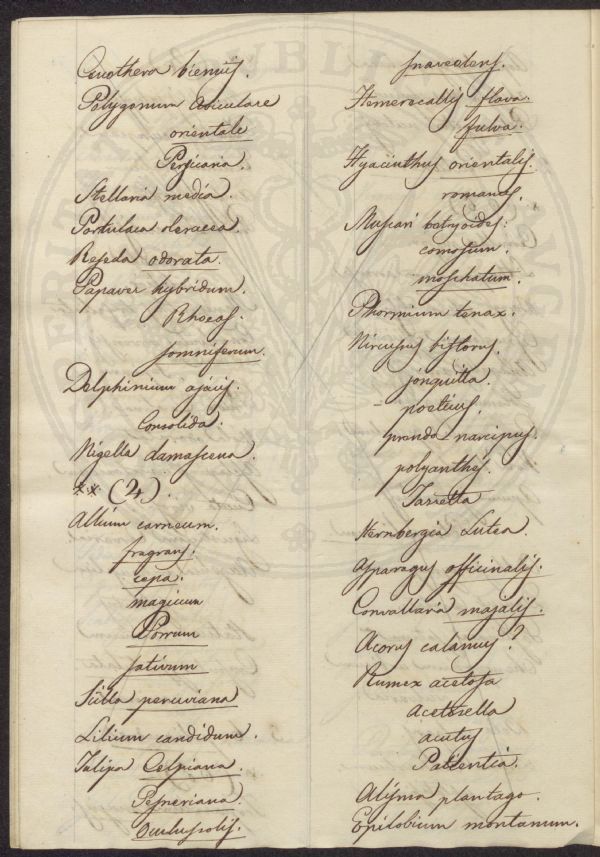 Œnothera biennis.
Polygonum aviculare
orientale
Persicaria.
Stellaria media.
Portulaca oleracea
Reseda odorata.
Papaver hybridum.
Rhoeas.
somniferum.
Delphinium ajacis.
Consolida.
Nigella damascena.
** (2).
Allium carneum.
fragrans.
cepa.
magicum
Porrum
sativum
Scilla peruviana
Lilium candidum.
Tulipa Celsiana.
Gesneriana.
Oculus solis.
suaveolens.
Hemerocallis flava.
fulva.
Hyacinthus orientalis
romanus.
Muscari botryoides:
comosum.
moschatum.
Phormium tenax.
Narcissus biflorus.
jonquilla.
poeticus.
pseudo-narcissus.
polyanthos.
Tazetta
Sternbergia Lutea.
Asparagus officinalis.
Convallaria majalis.
Acorus calamus?
Rumex acetosa
acetosella
acutus
Patientia.
Alisma plantago.
Epilobium montanum.